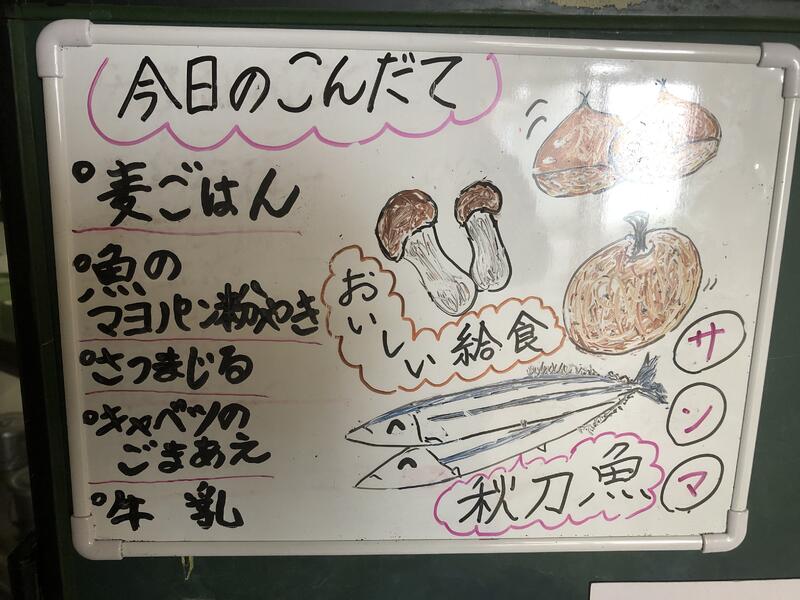 今日のこんだて
°麦ごはん
°魚の
マヨパン粉やき
°さつまじる
°キャベツの
ごまあえ
°牛乳
おいしい給食
サンマ
秋刀魚